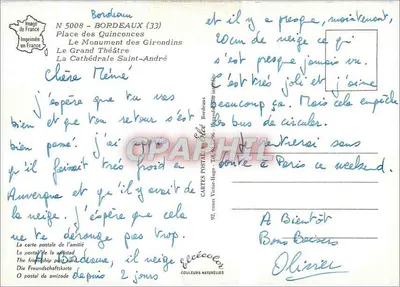 Bordeaux
Image
de France
Imprimée
en France
N 5008 - BORDEAUX (33)
Place des Quinconces
Le Monument des Girondins
Le Grand Théâtre
La Cathédrale Saint-André
Chère Mémé
J'espère que tu vas
bien et que ton retour s'est
bien passé. J'ai
qu'il faisait très froid en
Auvergne et qu'il y avait de
la neige. J'espère que cela
ne te dérange pas trop.
A Bordeaux, il neige
depuis 2 jours
La carte postale de l'amitié
La postal de la amistad
The friendship
Die Freundschaftskarte
O postal da amizade
et il y a presque, maintenant,
20cm de neige ce qui
s'est presque jamais vu.
C'est très joli et j'aime
beaucoup ça. Mais cela empêche
les bus de circuler.
Je rentrerai sans
doute à Paris ce weekend.
A Bientôt
Bons Baisers
Olivier
CARTES POSTALES
Bordeaux
92, cours Victor-Hugo
CPARAMA
elcécolor
COULEURS NATURELLES